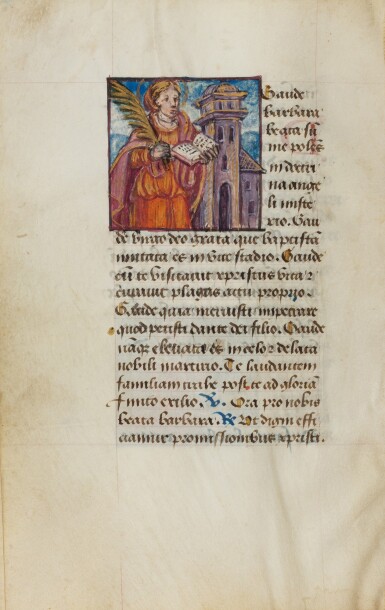 Gaude
barbara
beata su
me polēs
in doctri
na ange
li miste
rio. Gau
de virgo deo grata que baptistā
imitata es in vite stadio. Gaude
cū te visitavit xpristus vita ⁊
curavit plagas actu proprio.
Gaude quia meruisti impetrare
quod petisti dante dei filio. Gaude
nāqꝫ elevata es in celo ⁊ de lata
nobili martirio. Te laudantem
familiam trahe post te ad gloriā
finito exilio. ℣. Ora pro nobis
beata barbara. ℟ Ut digni effi
ciamur promissionibus xpristi.